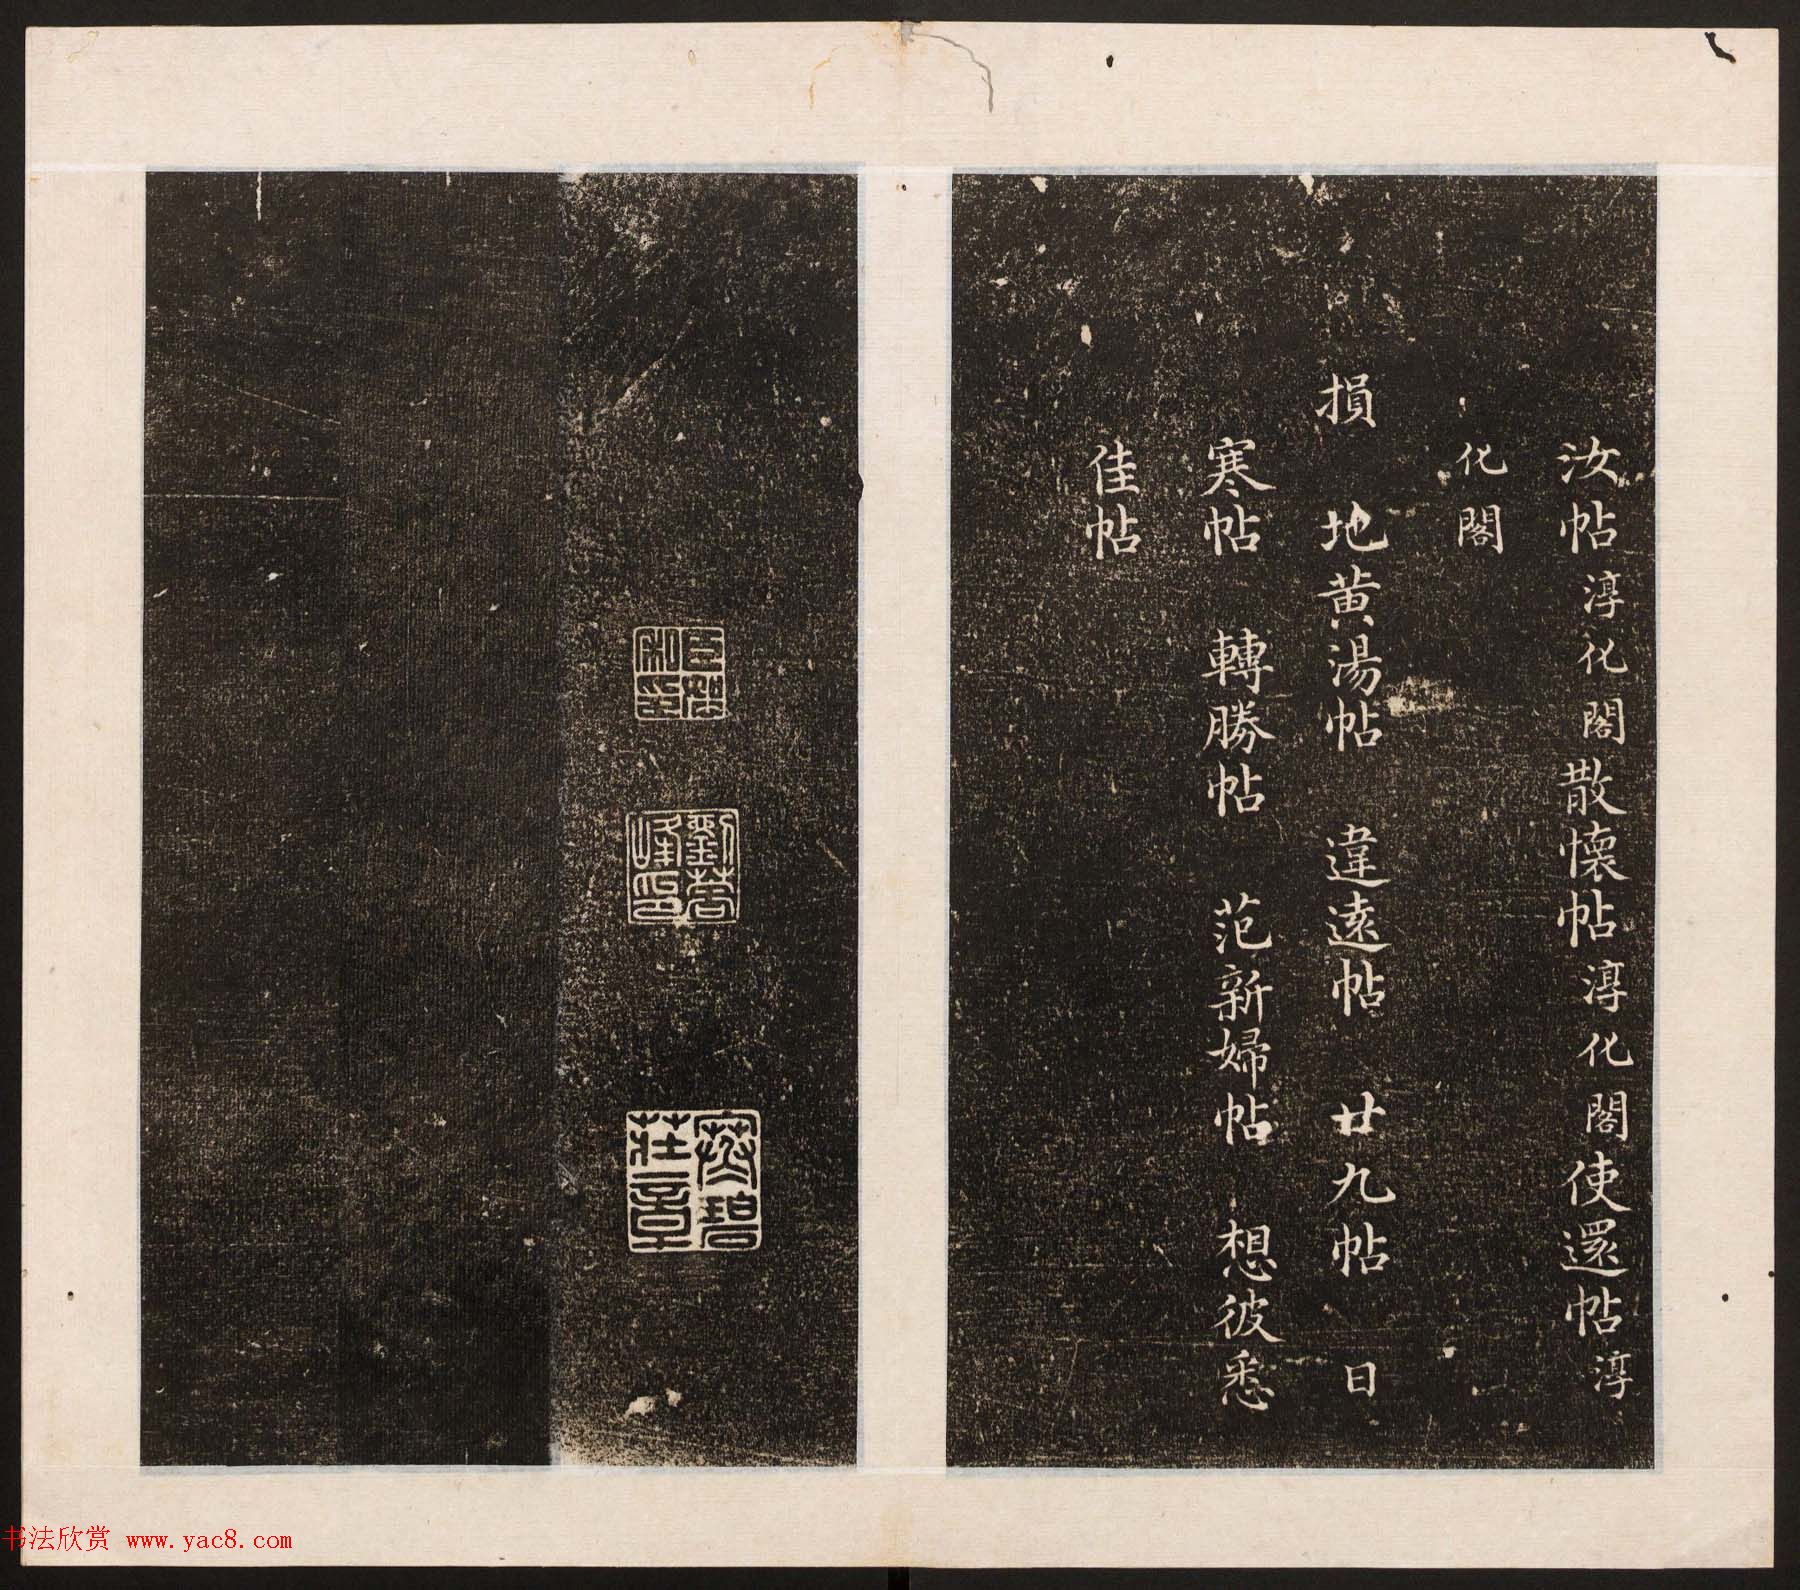 汝帖淳化閣散懷帖淳化閣使還帖淳
化閣
損 地黄湯帖 違遠帖 廿九帖 日
寒帖 轉勝帖 范新婦帖 想彼悉
佳帖
臣恕私印
劉蓉峰印
寒碧莊章
书法欣赏 www.yac8.com